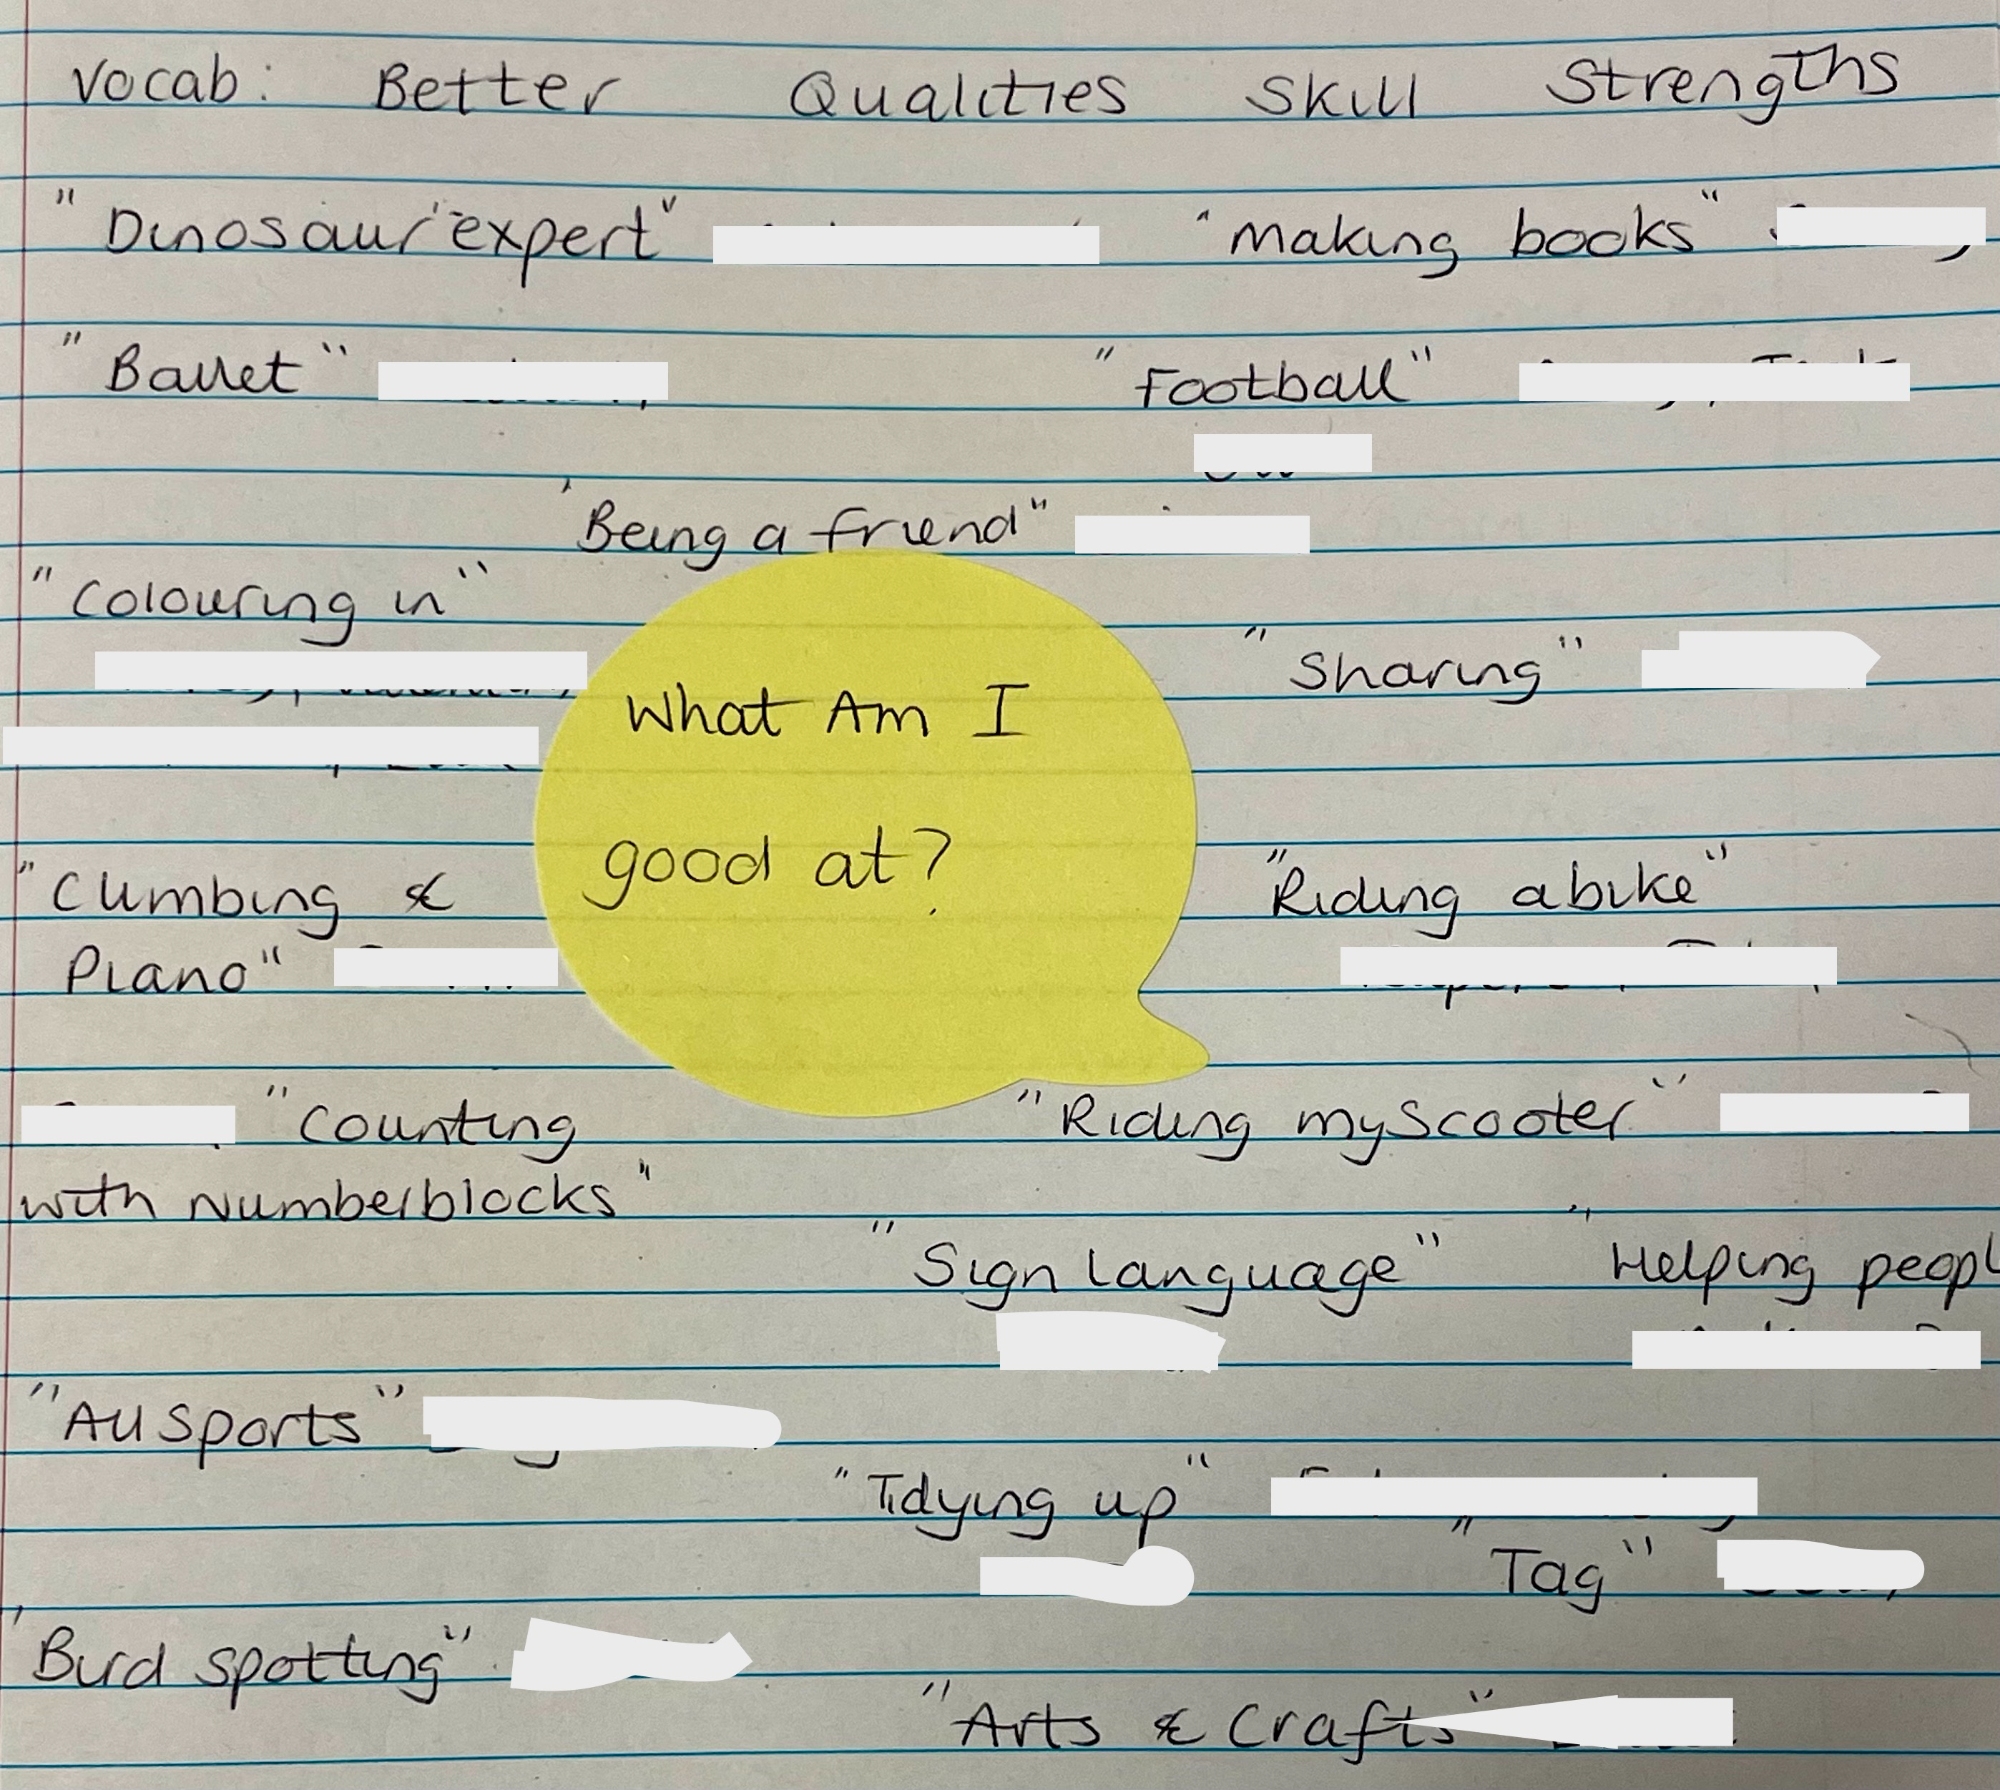 Vocab: Better Qualities Skill Strengths
"Dinosaur expert" "making books"
"Ballet" "Football"
"Being a friend"
"Colouring in"
"Sharing"
What Am I
good at?
"Climbing &
Piano"
"Riding a bike"
"Counting
with Numberblocks"
"Riding my scooter"
"Sign language" "Helping peopl
"All sports"
"Tidying up"
"Tag"
'Bird spotting"
"Arts & Crafts"